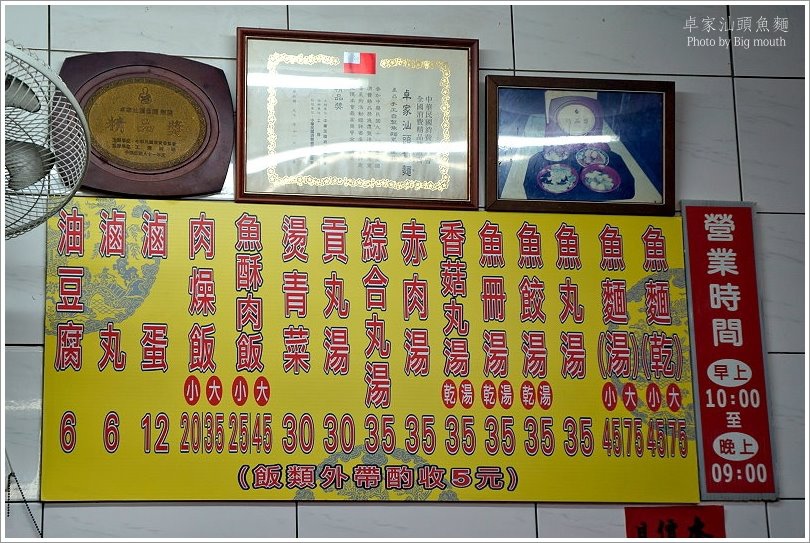 卓家汕頭魚麵
Photo by Big mouth
精品獎
卓家汕頭魚麵
魚麵(乾) 小 大 45 75
魚麵(湯) 小 大 45 75
魚丸湯 35
魚餃湯 乾 湯 35
魚冊湯 乾 湯 35
香菇丸湯 乾 湯 35
赤肉湯 35
綜合丸湯 35
貢丸湯 30
燙青菜 30
魚酥肉飯 小 大 25 45
肉燥飯 小 大 20 35
滷蛋 12
滷丸 6
油豆腐 6
(飯類外帶酌收5元)
營業時間
早上
10:00
至
晚上
09:00